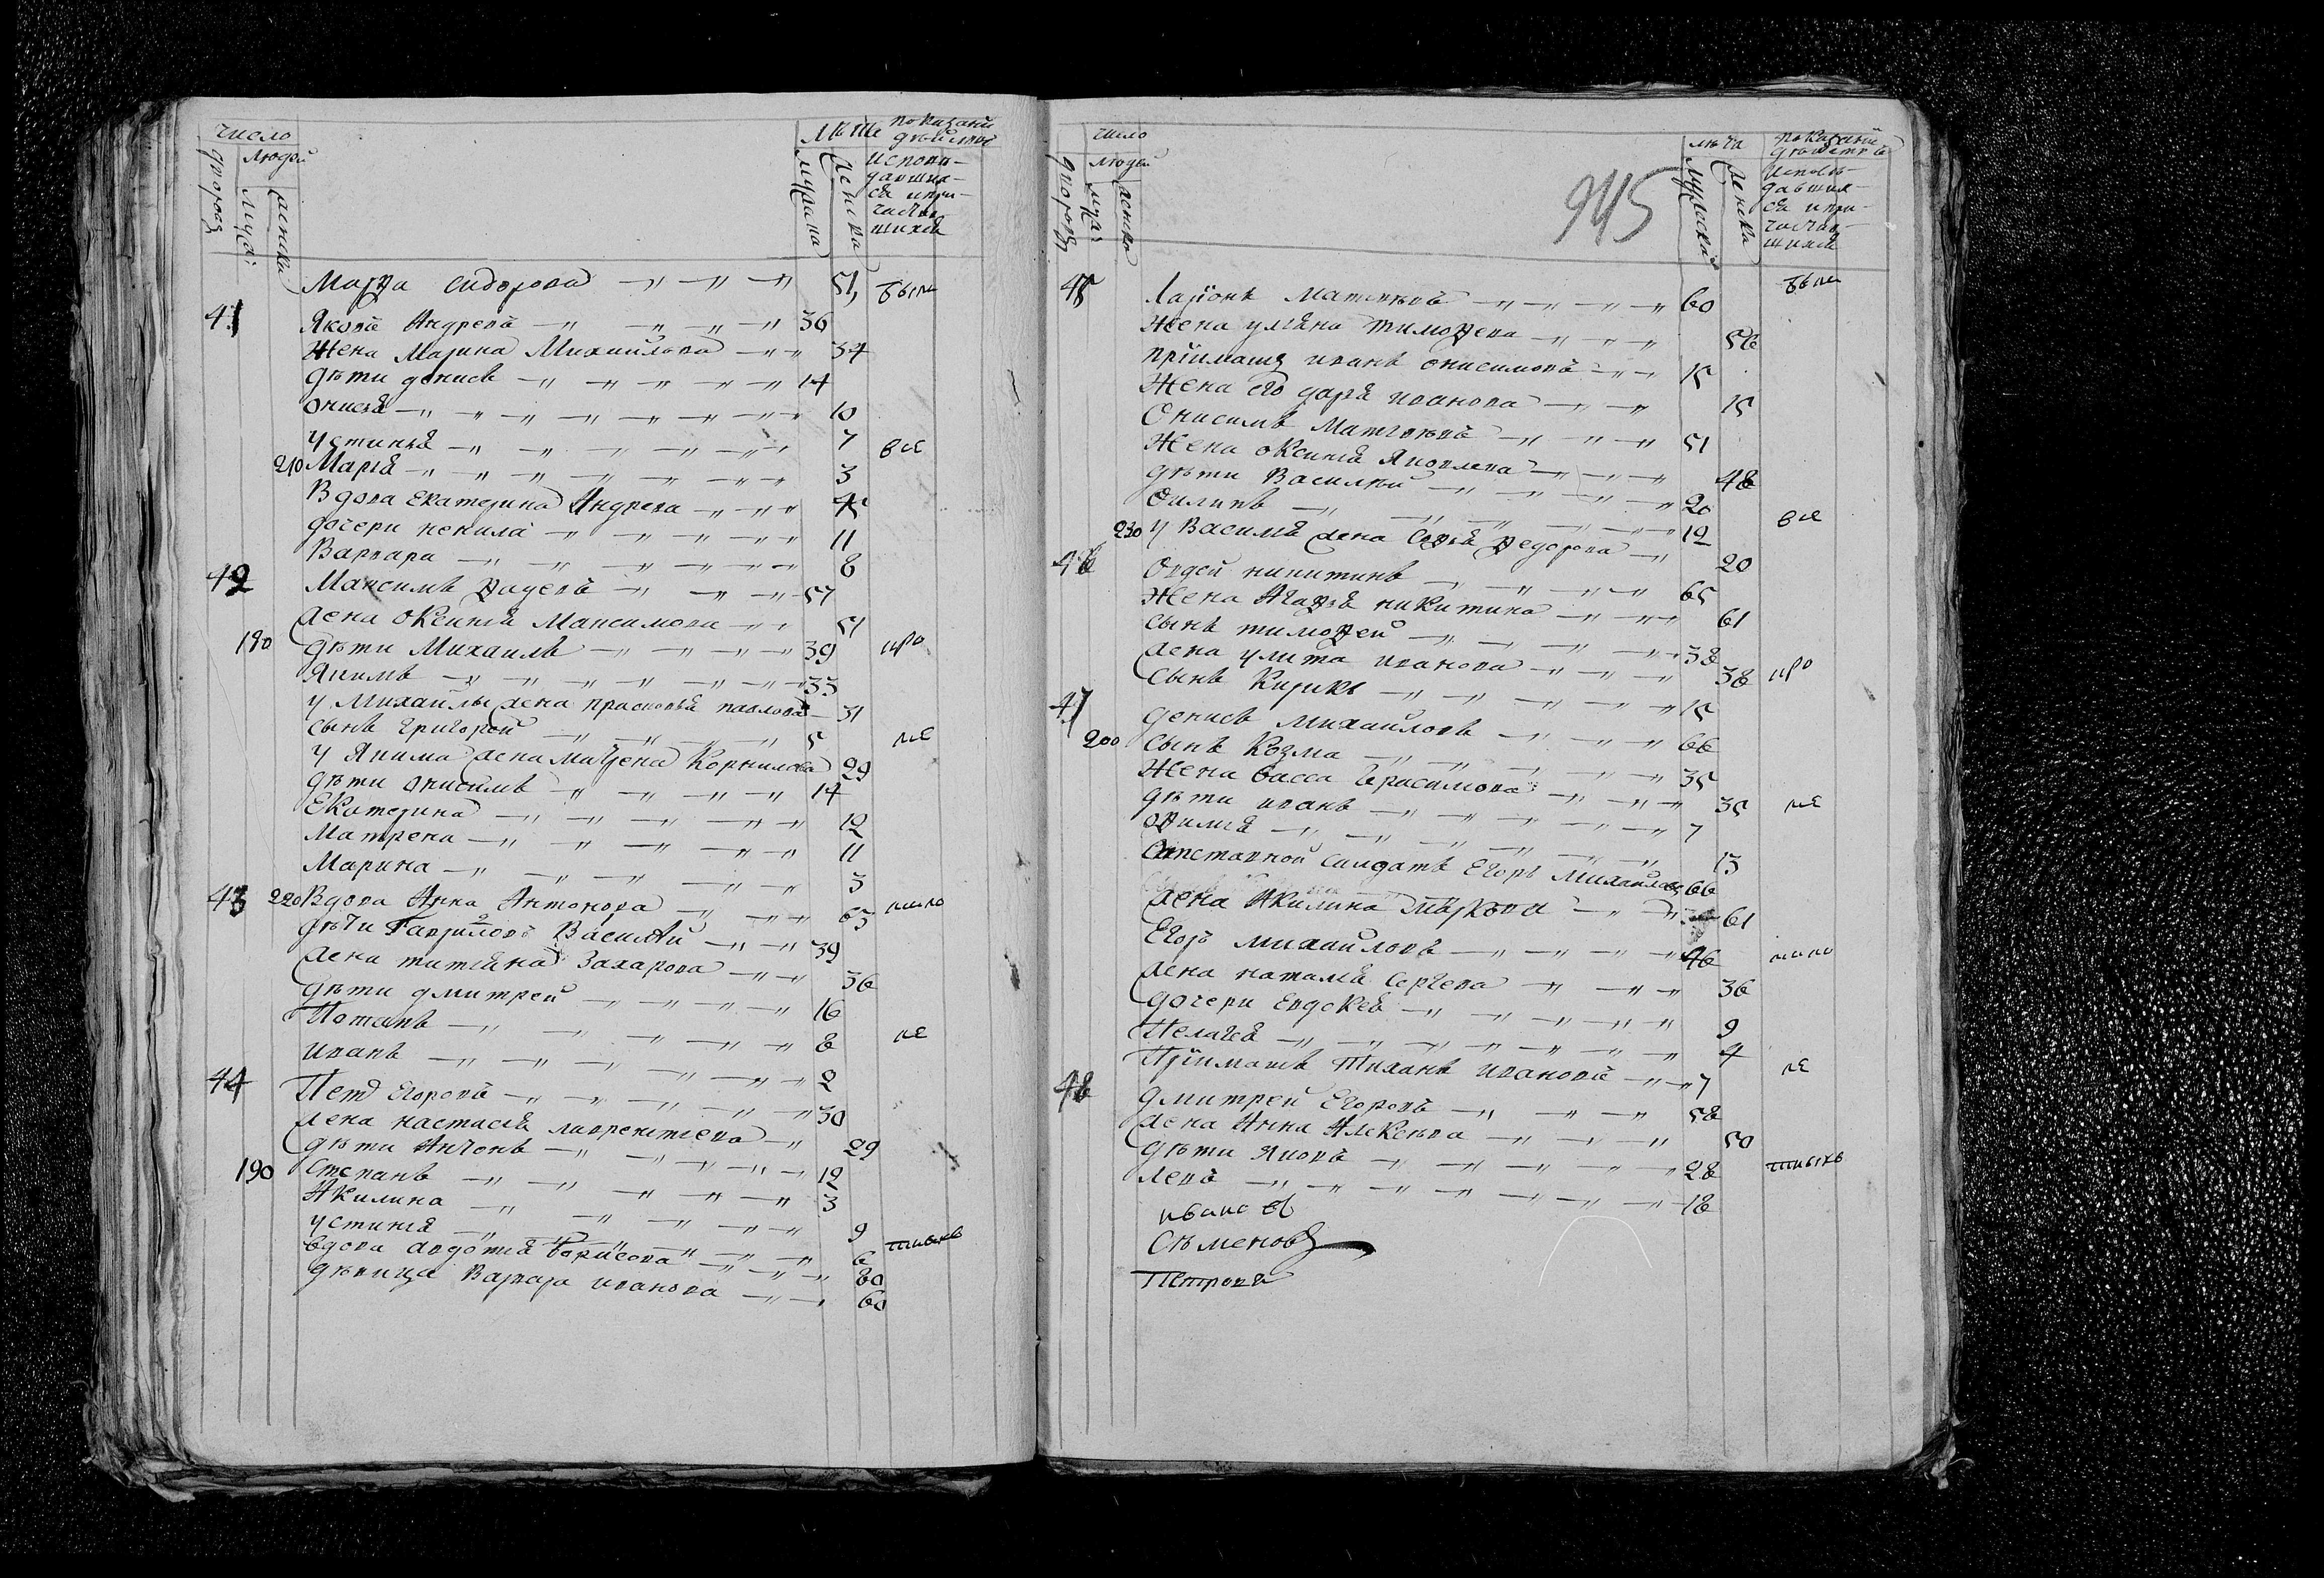 число
людей
дворовъ
муже:
женска
лѣта
мужска
женска
показаніе
дѣйства
исповѣ-
давших-
ся и при-
частив-
шихся
Марѳа Сидорова 51 были
41 Яковъ Андреевъ 36
Жена Марина Михайлова 34
дѣти Денисъ 14
Онисья 10
Устинья 7 все
210 Марья 3
Вдова Екатерина Андреева 45
дочери Ненила 11
Варвара 8
42 Максимъ Фадеевъ 57
жена Оксинья Максимова 51
180 дѣти Михаилъ 39 про
Якимъ 33
у Михайлы жена Прасковья Павлова 31
сынъ Григорей 5 ле
у Якима жена Матрена Корнилова 29
дѣти Онисимъ 14
Екатерина 12
Матрена 11
Марина 3
43 220 Вдова Анна Антонова 63
дѣти Гавриловъ Василей 39
жена Татьяна Захарова 36
дѣти Дмитрей 16
Потапъ 8 не
Иванъ 2
44 Петръ Егоровъ 30
жена Настасья Лаврентьева 29
дѣти Антонъ 12
190 Степанъ 3
Акилина 9
Устинья 6
вдова Авдотья Борисова 80
дѣвица Варвара Иванова 60
945
число
людей
дворовъ
муже:
женска
лѣта
мужска
женска
показаніе
дѣйства
исповѣ-
давших-
ся и при-
частив-
шихся
45 Ларіонъ Матвѣевъ 60 были
Жена Ульяна Тимоѳеева 56
Пріимашъ Иванъ Онисимовъ 15
Жена его Дарья Иванова 15
Онисимъ Матвѣевъ 51
Жена Оксинья Яковлева 48
дѣти Василей 20
Филипъ 12 все
230 у Василья жена Софья Федорова 20
46 Овдей Никитинъ 65
Жена Агафья Никитина 61
сынъ Тимоѳей 38
жена Улита Иванова 38 про
Сынъ Кирикъ 15
47 Денисъ Михайловъ 66
200 Сынъ Козма 35
Жена Васса Герасимова 35 ле
дѣти Иванъ 7
Офимья 13
Отставной Салдатъ Егоръ Михайловъ 66
жена Акилина Маркова 61
Егоръ Михайловъ 46
жена Наталья Сергеева 36
дочери Евдокея 9
Пелагея 4
Пріимашъ Тиханъ Ивановъ 7 не
48 Дмитрей Егоровъ 58
жена Анна Алексѣева 50
дѣти Яковъ 28
Левъ 18
Иванов
Сѣменовъ
Петрова